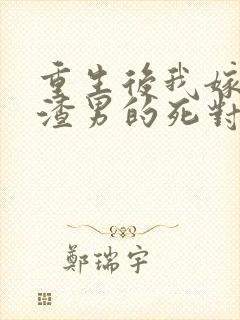 重生後我嫁
渣男的死對
鄭瑞宇